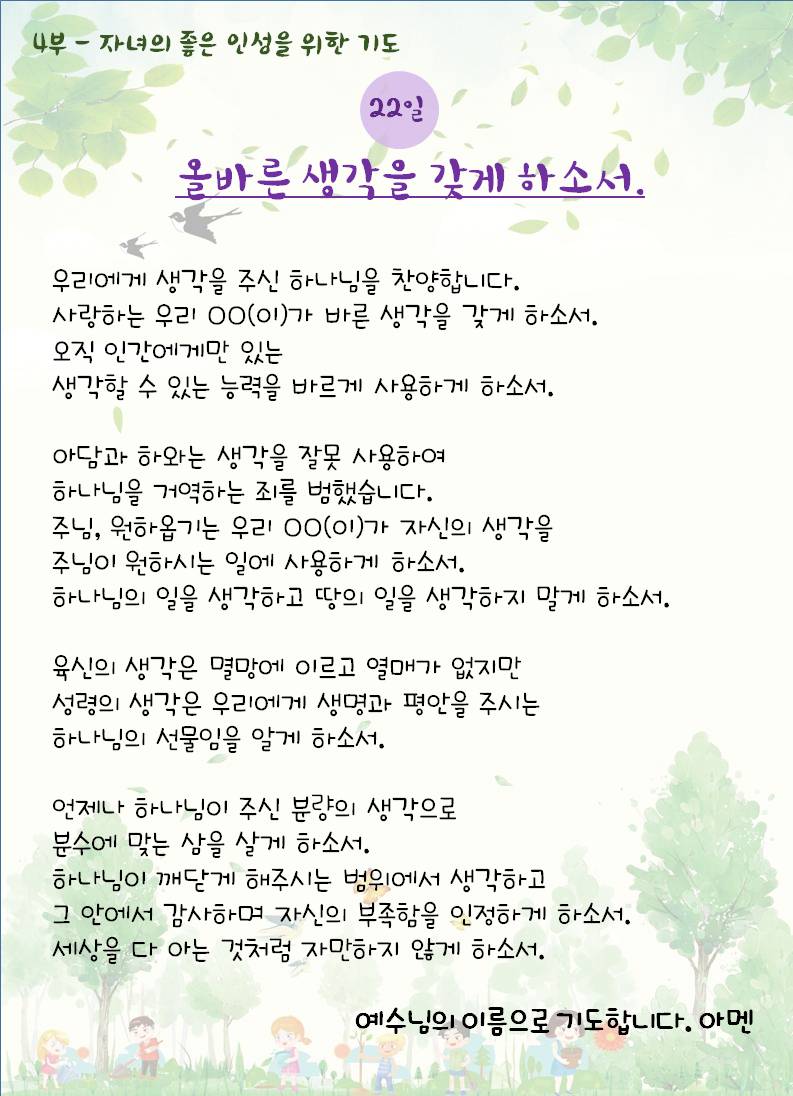 4부 - 자녀의 좋은 인성을 위한 기도
22일
올바른 생각을 갖게 하소서.
우리에게 생각을 주신 하나님을 찬양합니다.
사랑하는 우리 OO(이)가 바른 생각을 갖게 하소서.
오직 인간에게만 있는
생각할 수 있는 능력을 바르게 사용하게 하소서.
아담과 하와는 생각을 잘못 사용하여
하나님을 거역하는 죄를 범했습니다.
주님, 원하옵기는 우리 OO(이)가 자신의 생각을
주님이 원하시는 일에 사용하게 하소서.
하나님의 일을 생각하고 땅의 일을 생각하지 말게 하소서.
육신의 생각은 멸망에 이르고 열매가 없지만
성령의 생각은 우리에게 생명과 평안을 주시는
하나님의 선물임을 알게 하소서.
언제나 하나님이 주신 분량의 생각으로
분수에 맞는 삶을 살게 하소서.
하나님이 깨닫게 해주시는 범위에서 생각하고
그 안에서 감사하며 자신의 부족함을 인정하게 하소서.
세상을 다 아는 것처럼 자만하지 않게 하소서.
예수님의 이름으로 기도합니다. 아멘